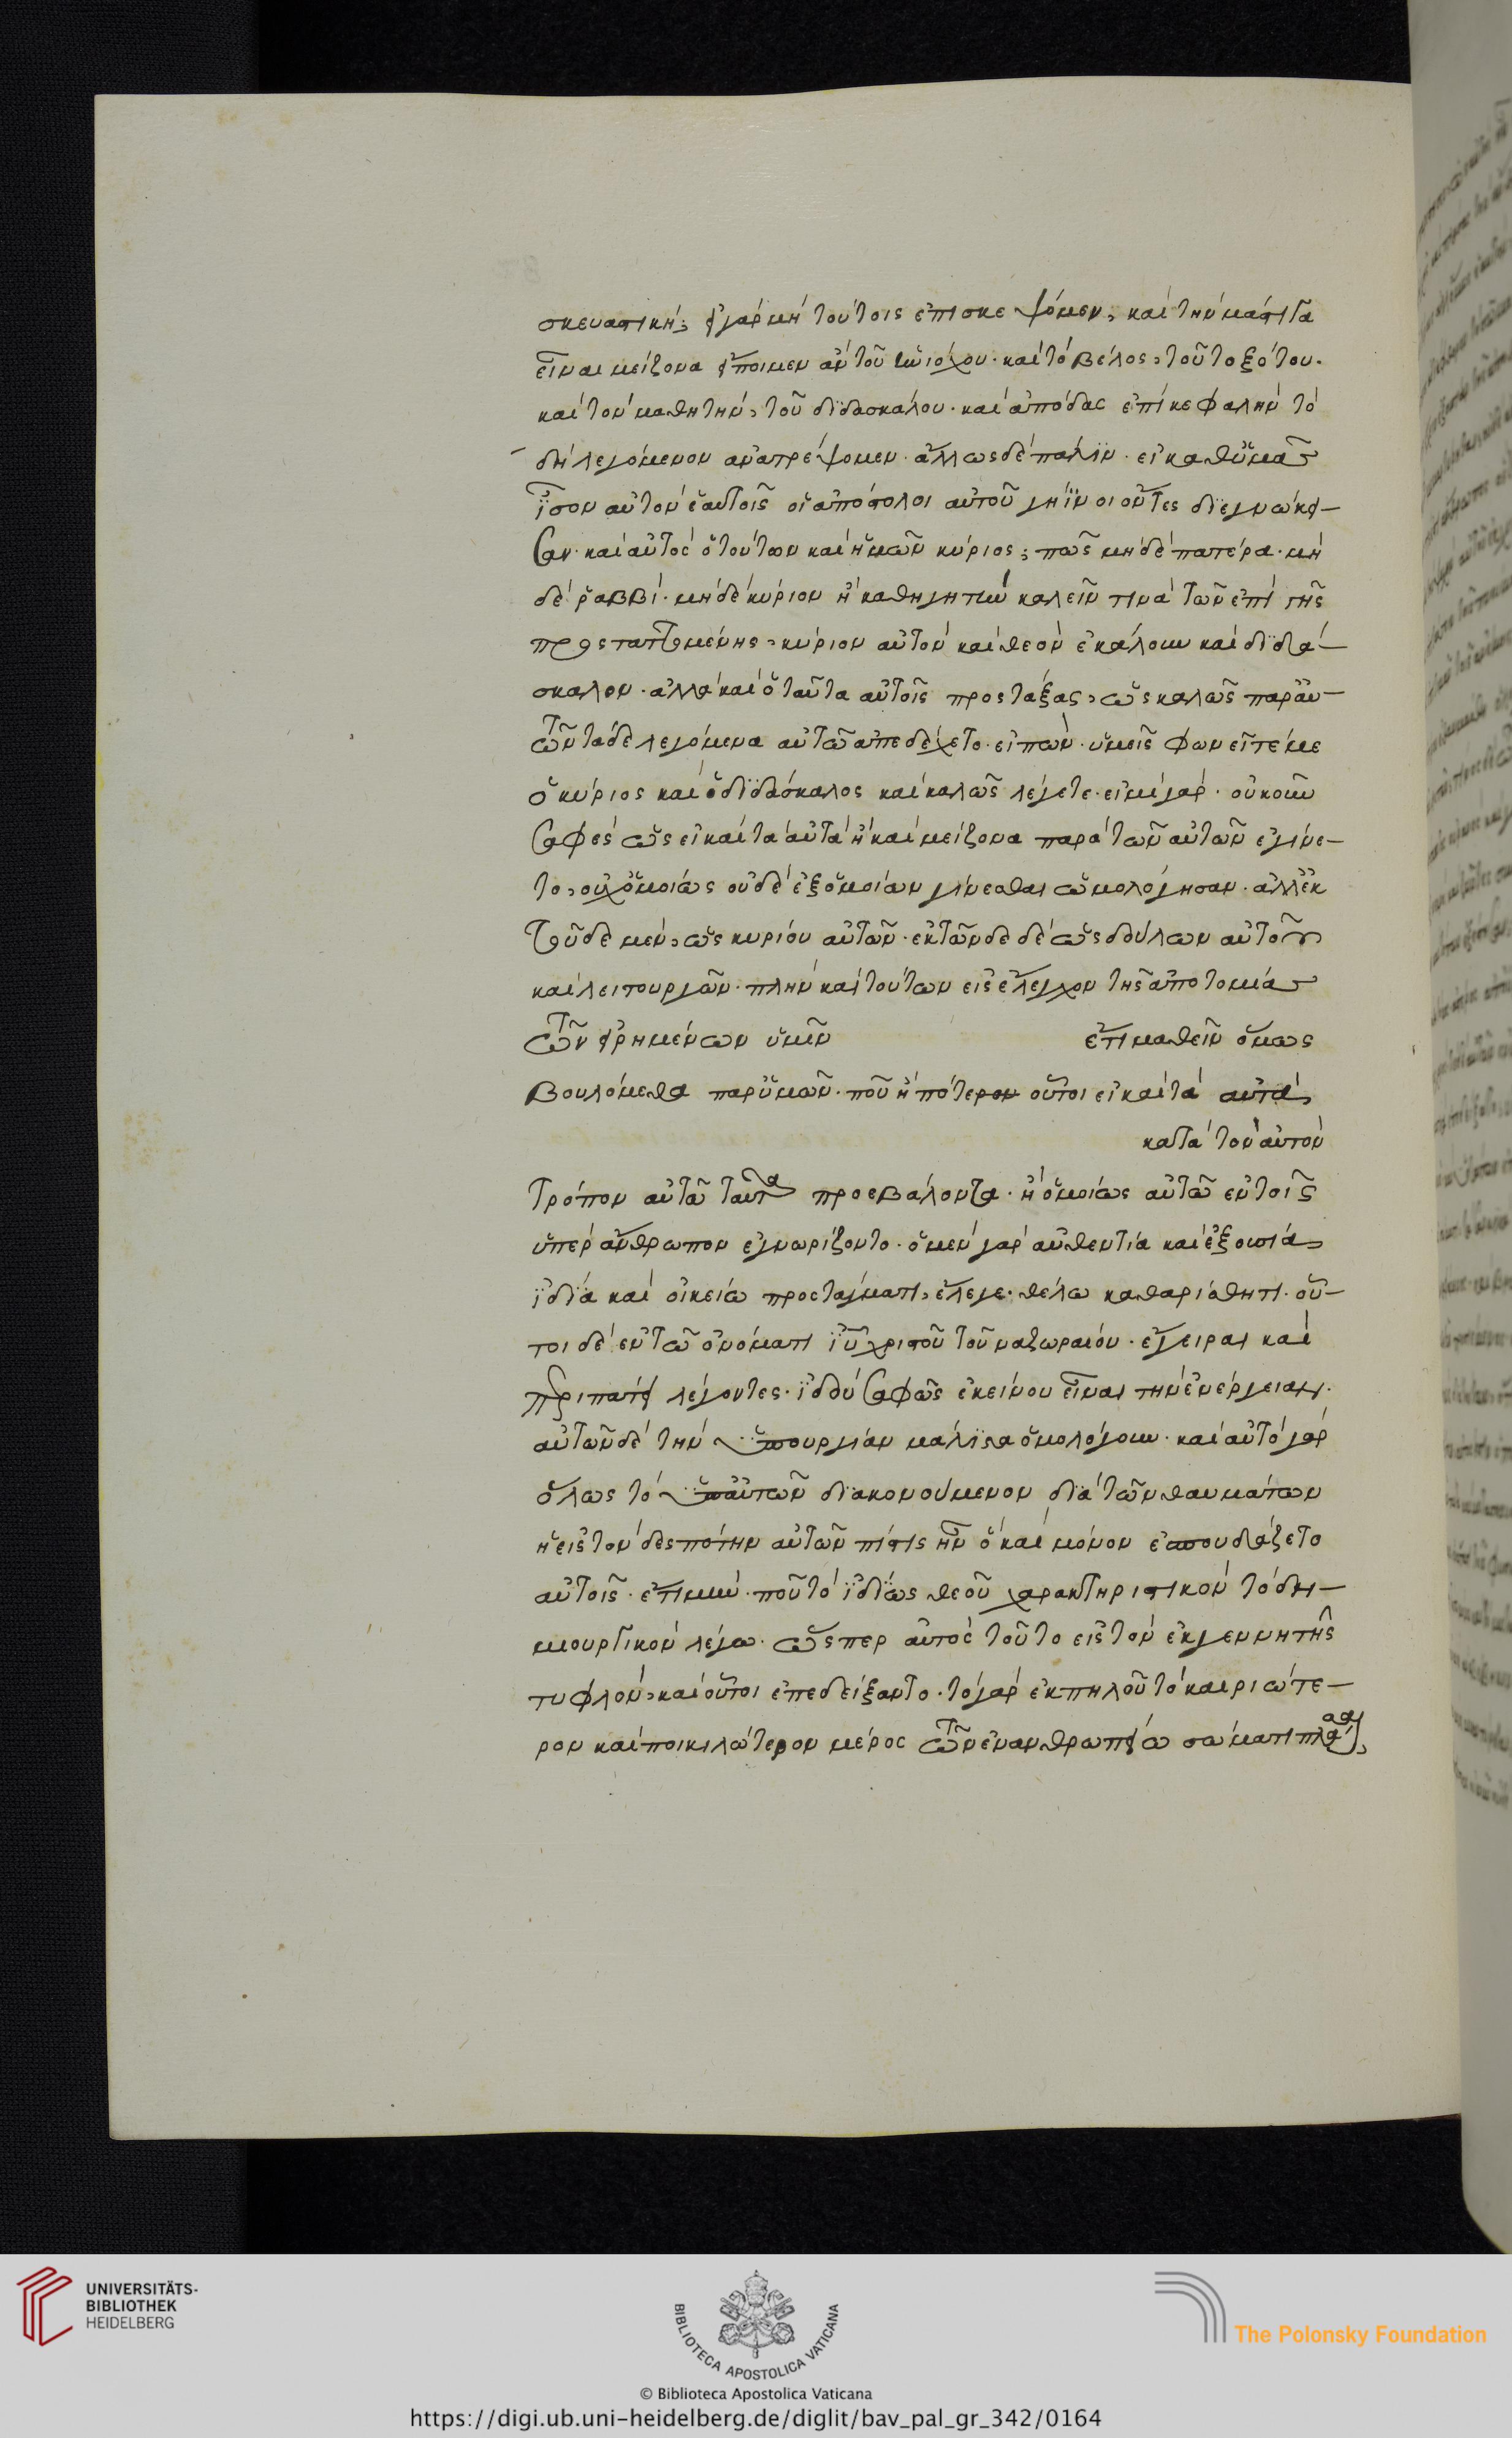 σκευαστική; εἰ γὰρ μὴ τούτοις ἐπισκεψόμεν, καὶ τὴν μάστιγα
εἶναι μείζονα εἴποιμεν ἂν τοῦ ἡνιόχου· καὶ τὸ βέλος, τοῦ τοξότου·
καὶ τὸν μαθητὴν, τοῦ διδασκάλου· καὶ ἀπόδας ἐπὶ κεφαλὴν τὸ
δὴ λεγόμενον ἀνατρέψομεν· ἄλλως δὲ πάλϊν· εἰ καθ ὑμᾶς
ἶσον αὐτὸν ἑαυτοῖς οἱ ἀπόστολοι αὐτοῦ γήϊνοι ὄντες δϊεγνώκει-
σαν· καὶ αὐτὸς ὁ τούτων καὶ ἡμῶν κύριος; πῶς μηδὲ πατέρα· μη
δὲ ῥαββί· μηδὲ κύριον ἢ καθηγητὴν καλεῖν τινὰ τῶν ἐπὶ γῆς
προςταττομένης, κύριον αὐτὸν καὶ θεὸν ἐκάλουν καὶ δϊδά-
σκαλον· ἀλλὰ καὶ ὁ ταῦτα αὐτοῖς προςτάξας, ὡς καλῶς παρ αὐ-
τῶν τάδε λεγόμενα αὐτῶ ἀπεδέχετο· εἰπὼν· ὑμεῖς φωνεῖτέ με
ὁ κύριος καὶ ὁ δϊδάσκαλος καὶ καλῶς λέγετε· εἰμὶ γάρ· οὐκοῦν
σαφὲς ὡς εἰ καὶ τὰ αὐτὰ ἢ καὶ μείζονα παρὰ τῶν αὐτῶν ἐγίνε-
το, οὐχ ὁμοιώς οὐδὲ ἐξ ὁμοίων γίνεσθαι ὡμολόγησαν· ἀλλ ἐκ
τοῦδε μὲν, ὡς κυρίου αὐτῶν· ἐκ τῶνδε δὲ ὡς δούλων αὐτοῦ
καὶ λειτουργῶν· πλὴν καὶ τούτων εἰς ἔλεγχον τῆς ἀποτομίας
τῶν εἰρημένων ὑμῖν ἔτι μαθεῖν ὅμως
βουλόμεθα παρ ὑμῶν· ποῦ ἢ πότερον οὗτοι εἰ καὶ τὰ αὐτὰ,
κατὰ τὸν αὐτὸν
τρόπον αὐτῶ ταῦτα προεβάλοντα· ἢ ὁμοιώς αὐτῶ ἐν τοῖς
ὑπὲρ ἄνθρωπον ἐγνωρίζοντο· ὁ μὲν γὰρ αὐθεντία καὶ ἐξουσία,
ϊδϊα καὶ οἰκείω προςτάγματι, ἔλεγε· θέλω καθαρίσθητι· οὗ-
τοι δὲ ἐν τῶ ὀνόματι ϊυ χριστοῦ τοῦ ναζωραίου· ἔγειραι καὶ
περιπάτει λέγοντες· ϊδοὺ σαφῶς ἐκείνου εἶναι τὴν ἐνέργειαν·
αὐτῶν δὲ τὴν ὑπουργίαν μάλϊστα ὁμολόγουν· καὶ αὐτὸ γὰρ
ὅλως τὸ ὑπ αὐτῶν δϊακονούμενον δϊὰ τῶν θαυμάτων
ἡ εἰς τὸν δεσπότην αὐτῶν πίστις ἦν ὃ καὶ μόνον ἐσπουδάζετο
αὐτοῖς· ἔτι μὴν· ποῦ τὸ ϊδϊώς θεοῦ χαρακτηριστικὸν τὸ δη-
μιουργικὸν λέγω· ὥςπερ αὐτὸς τοῦτο εἰς τὸν ἐκ γεννητῆς
τυφλὸν, καὶ οὗτοι ἐπεδείξαντο· τὸ γὰρ ἐκ πηλοῦ τὸ καιριώτε-
ρον καὶ ποικιλώτερον μέρος τῶν ἐν ἀνθρωπείω σώματι
UNIVERSITÄTS-
BIBLIOTHEK
HEIDELBERG
BIBLIOTECA APOSTOLICA VATICANA
The Polonsky Foundation
© Biblioteca Apostolica Vaticana
https://digi.ub.uni-heidelberg.de/diglit/bav_pal_gr_342/0164